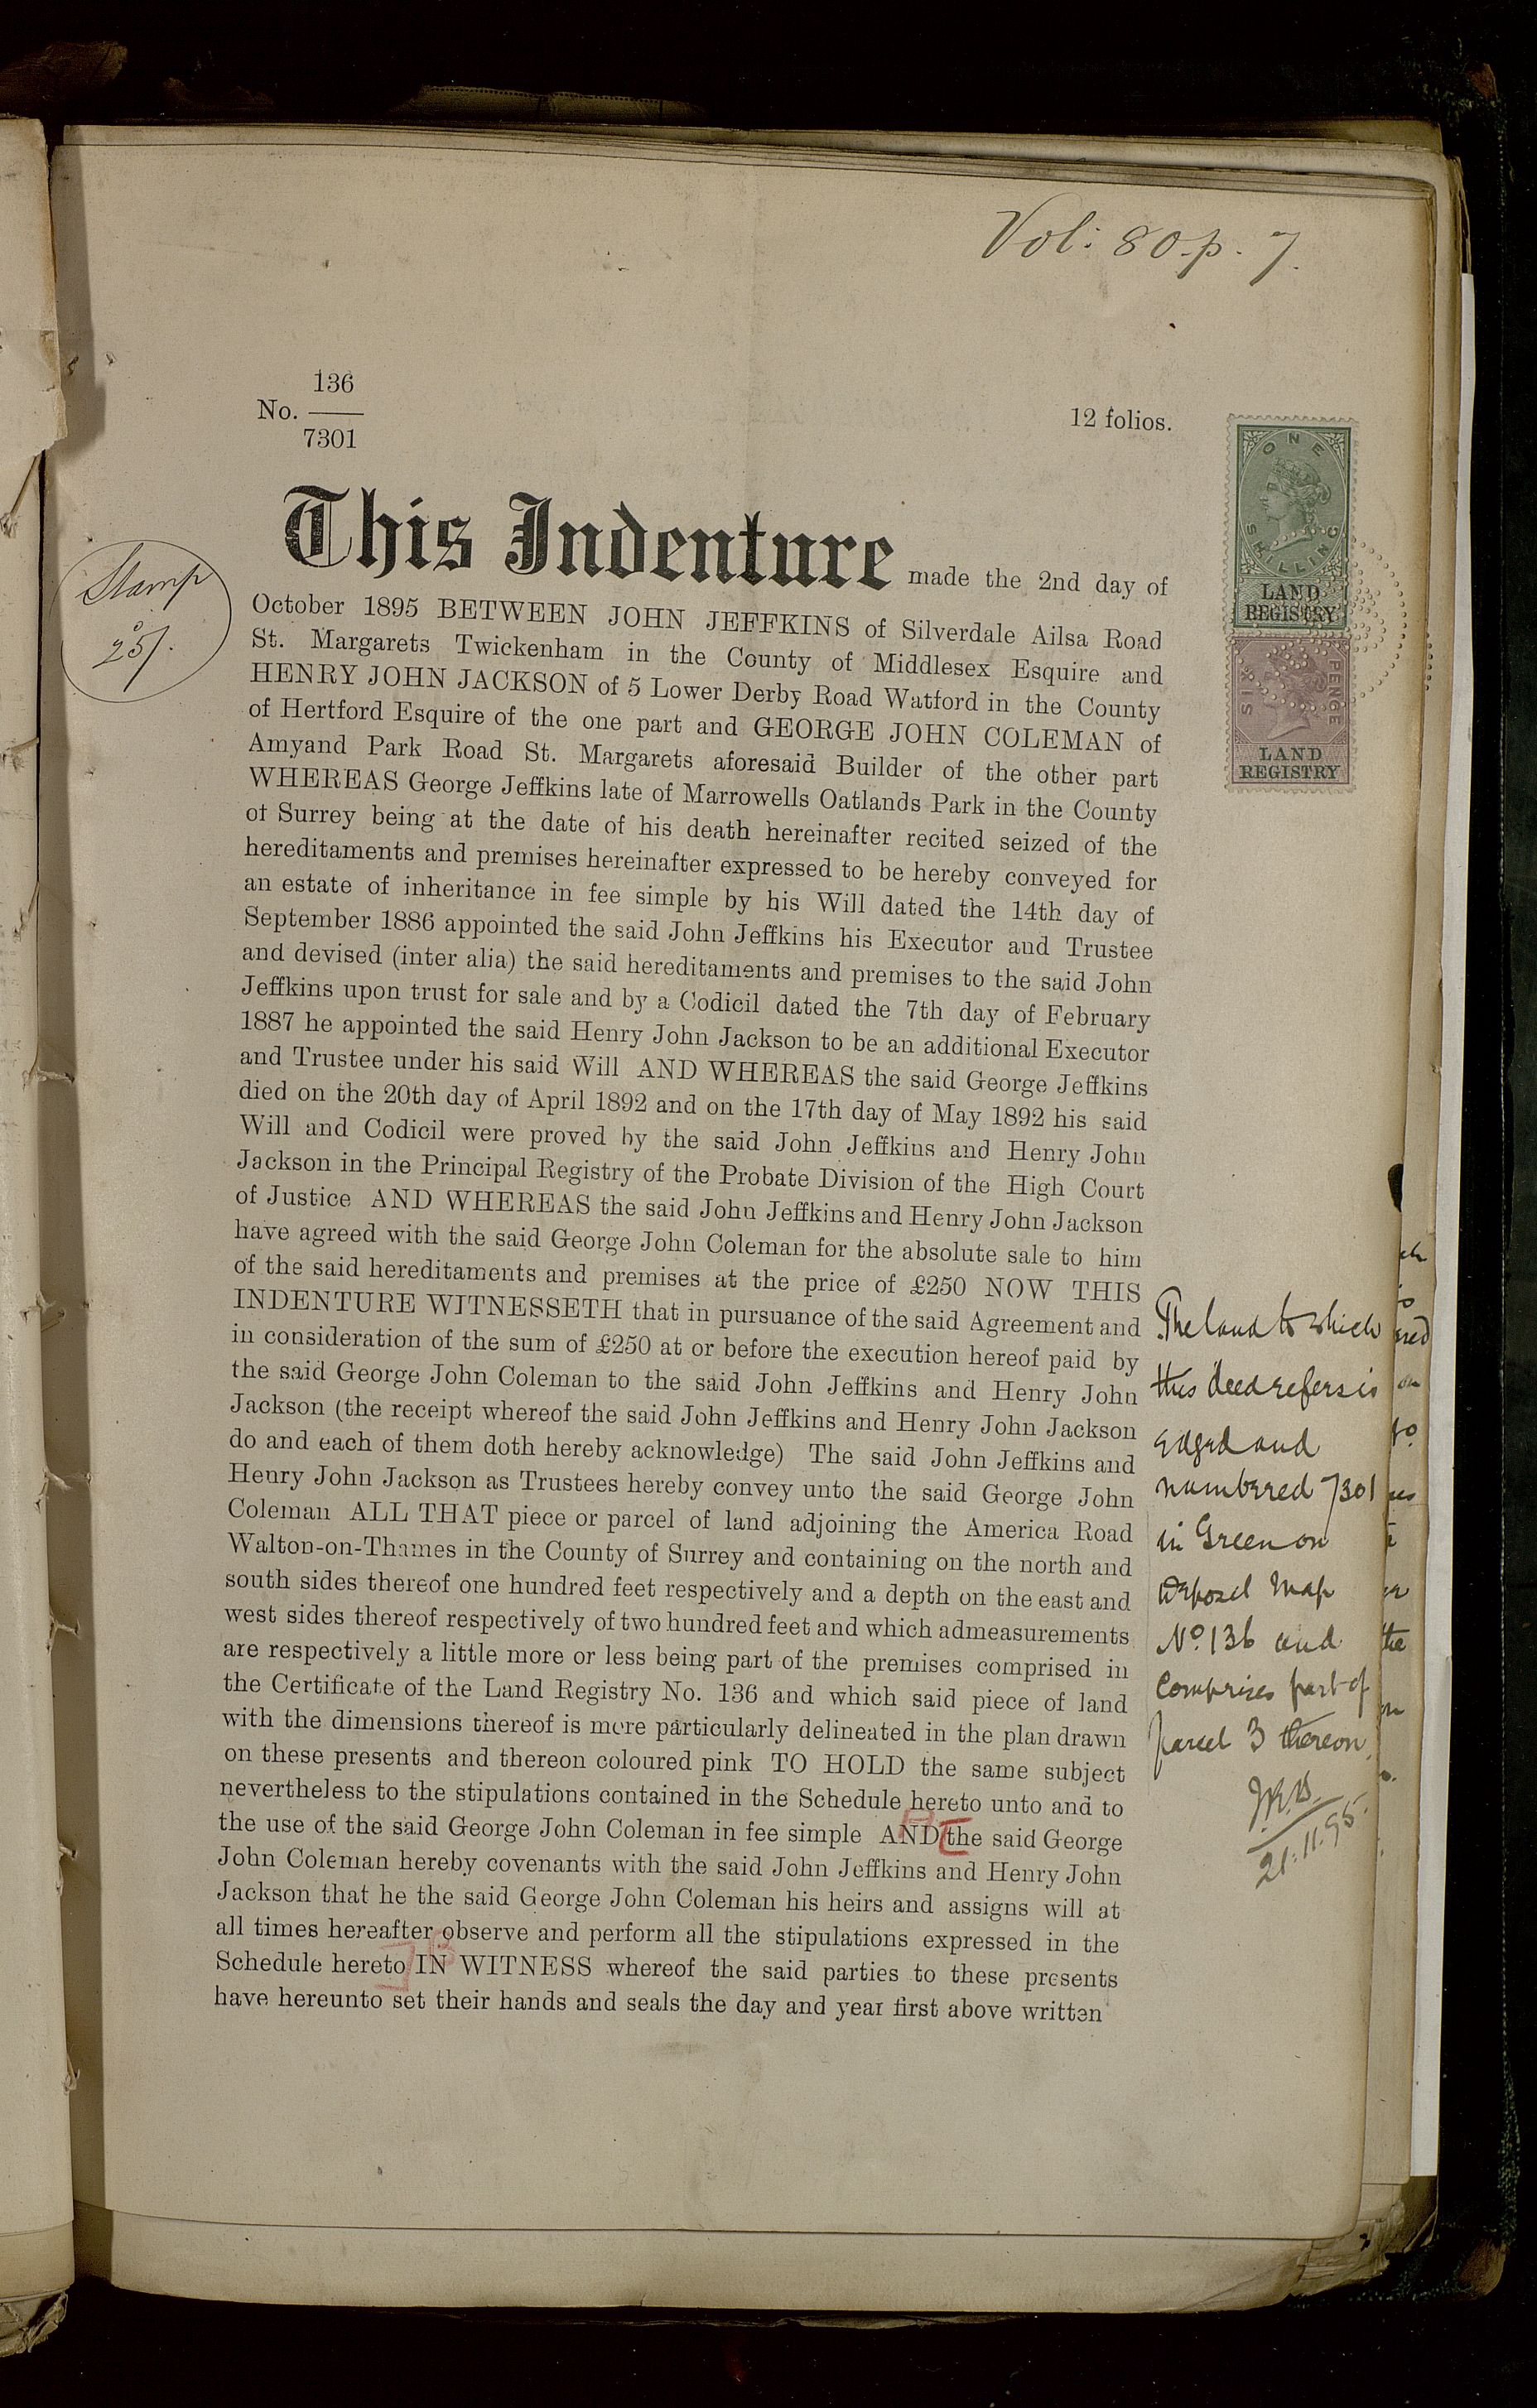 Vol: 80 p. 7.
136
No.
7301
12 folios.
Stamp
25/.
ONE
SHILLING
LAND
REGISTRY
SIX PENCE
LAND
REGISTRY
This Indenture made the 2nd day of
October 1895 BETWEEN JOHN JEFFKINS of Silverdale Ailsa Road
St. Margarets Twickenham in the County of Middlesex Esquire and
HENRY JOHN JACKSON of 5 Lower Derby Road Watford in the County
of Hertford Esquire of the one part and GEORGE JOHN COLEMAN of
Amyand Park Road St. Margarets aforesaid Builder of the other part
WHEREAS George Jeffkins late of Marrowells Oatlands Park in the County
of Surrey being at the date of his death hereinafter recited seized of the
hereditaments and premises hereinafter expressed to be hereby conveyed for
an estate of inheritance in fee simple by his Will dated the 14th day of
September 1886 appointed the said John Jeffkins his Executor and Trustee
and devised (inter alia) the said hereditaments and premises to the said John
Jeffkins upon trust for sale and by a Codicil dated the 7th day of February
1887 he appointed the said Henry John Jackson to be an additional Executor
and Trustee under his said Will AND WHEREAS the said George Jeffkins
died on the 20th day of April 1892 and on the 17th day of May 1892 his said
Will and Codicil were proved by the said John Jeffkins and Henry John
Jackson in the Principal Registry of the Probate Division of the High Court
of Justice AND WHEREAS the said John Jeffkins and Henry John Jackson
have agreed with the said George John Coleman for the absolute sale to him
of the said hereditaments and premises at the price of £250 NOW THIS
INDENTURE WITNESSETH that in pursuance of the said Agreement and
in consideration of the sum of £250 at or before the execution hereof paid by
the said George John Coleman to the said John Jeffkins and Henry John
Jackson (the receipt whereof the said John Jeffkins and Henry John Jackson
do and each of them doth hereby acknowledge) The said John Jeffkins and
Henry John Jackson as Trustees hereby convey unto the said George John
Coleman ALL THAT piece or parcel of land adjoining the America Road
Walton-on-Thames in the County of Surrey and containing on the north and
south sides thereof one hundred feet respectively and a depth on the east and
west sides thereof respectively of two hundred feet and which admeasurements
are respectively a little more or less being part of the premises comprised in
the Certificate of the Land Registry No. 136 and which said piece of land
with the dimensions thereof is more particularly delineated in the plan drawn
on these presents and thereon coloured pink TO HOLD the same subject
nevertheless to the stipulations contained in the Schedule hereto unto and to
the use of the said George John Coleman in fee simple AND the said George
John Coleman hereby covenants with the said John Jeffkins and Henry John
Jackson that he the said George John Coleman his heirs and assigns will at
all times hereafter observe and perform all the stipulations expressed in the
Schedule hereto IN WITNESS whereof the said parties to these presents
have hereunto set their hands and seals the day and year first above written
The land to which
this deed refers is
edged and
numbered 7301
in Green on
Deposd Map
No. 136 and
Comprises part of
parcel 3 thereon.
21.11.95.
the